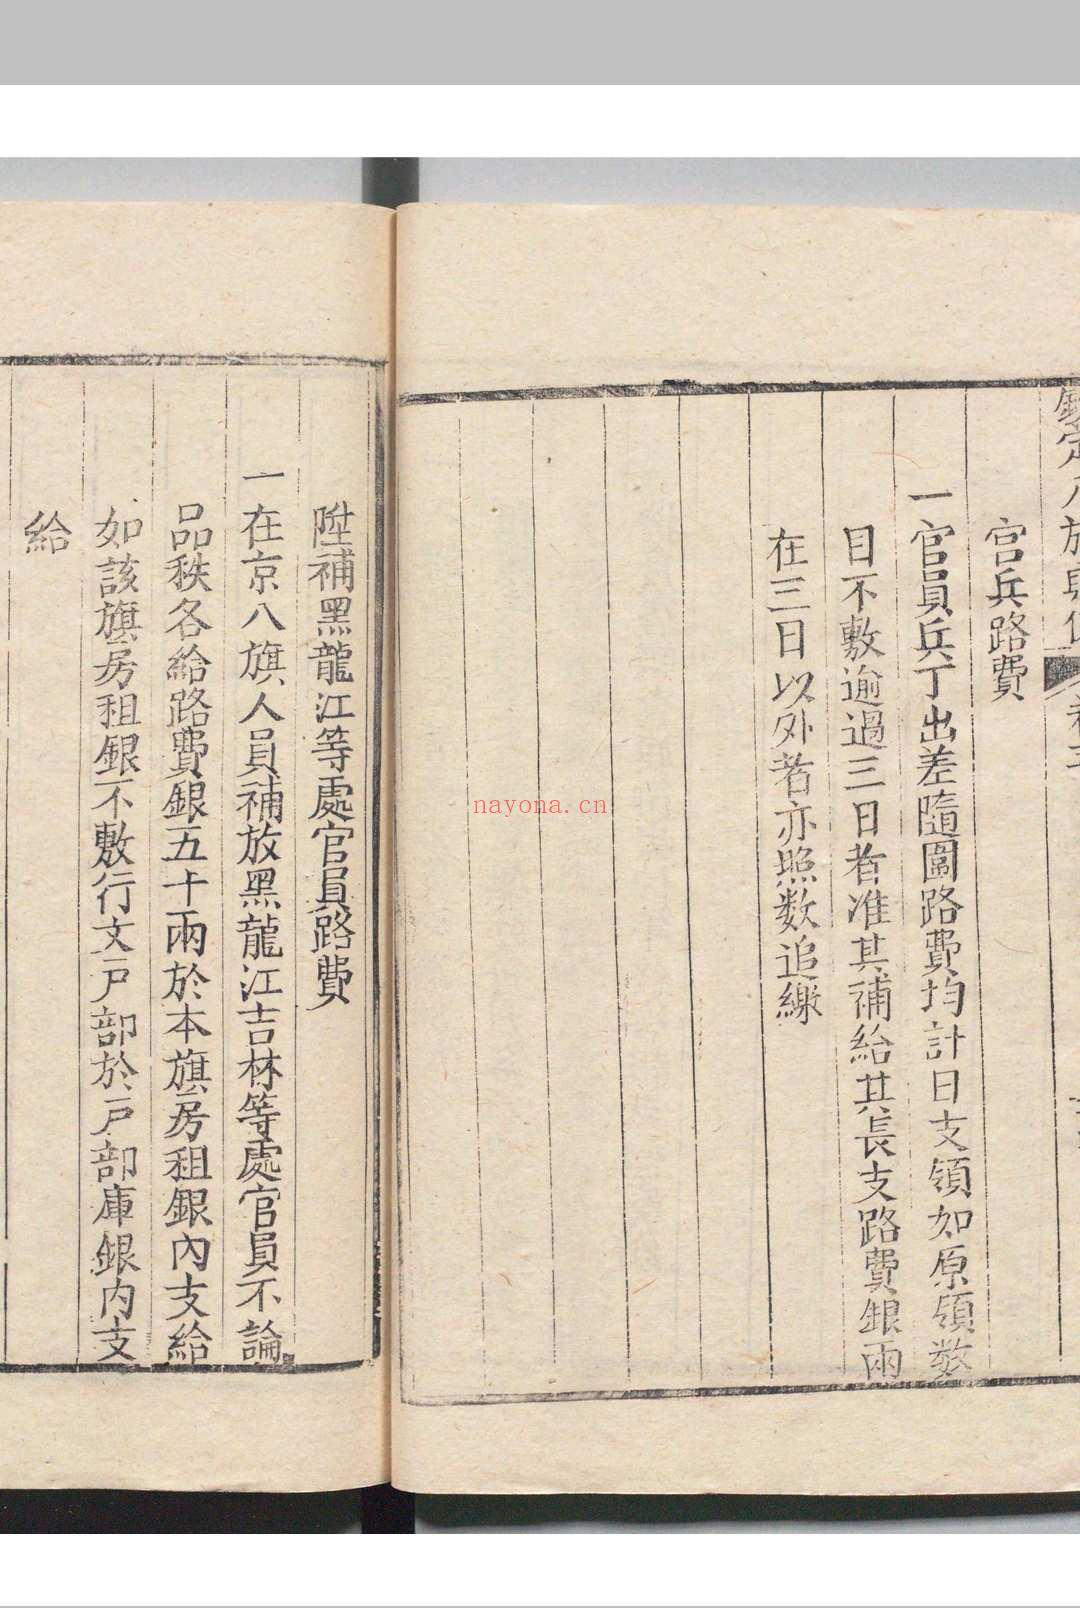 欽定八旗則例
卷三
官兵路費
一官員兵丁出差隨圍路費均計日支領如原領數
目不敷逾過三日者准其補給其長支路費銀兩
在三日以外者亦照数追繳
陞補黑龍江等處官員路費
一在京八旗人員補放黑龍江吉林等處官員不論
品秩各給路費銀五十兩於本旗房租銀內支給
如該旗房租銀不敷行文戸部於戸部庫銀内支
給
nayona.cn